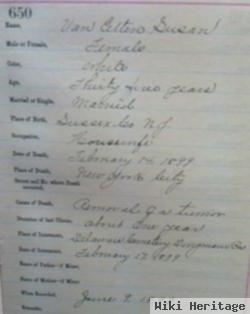 650
Name, Van Etten Susan
Male or Female, Female
Color, White
Age, Thirty five years
Married or Single, Married
Place of Birth, Sussex Co N.J.
Occupation, Housewife
Date of Death, February 14 1899
Place of Death, New York City
Street and No. where Death occurred,
Cause of Death, Removal of a tumor
Duration of last Illness, about One year
Place of Interment, Delaware Cemetery Dingmans Pa
Date of Interment, February 17 1899
Name of Father—if Minor
Name of Mother—if Minor
When Recorded, June 9
Remarks,
Wiki Heritage